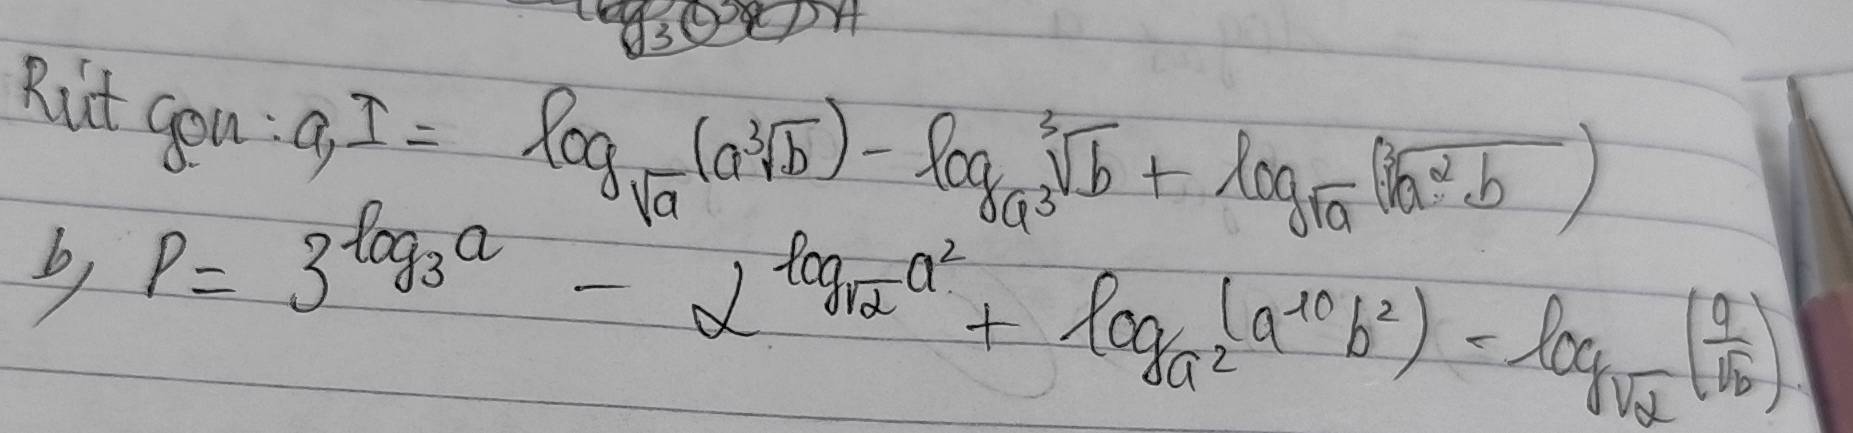 Rút gọn: a, I = log_{√a}(a∛b) - log_{a³}∛b + log_{√a}(∛(a².b))
b, P = 3^{log₃a} - 2^{log_{√2}a²} + log_{a²}(a¹⁰b²) - log_{√2}(a/√b)